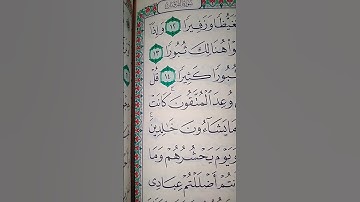 سورة الفرقان
تغيظا وزفيرا ١٢ وإذا
وا هنالك ثبورا ١٣
ثبورا كثيرا ١٤ قل
وعد المتقون كانت
ما يشاءون خلدين
ويوم يحشرهم وما
نتم أضللتم عبادى